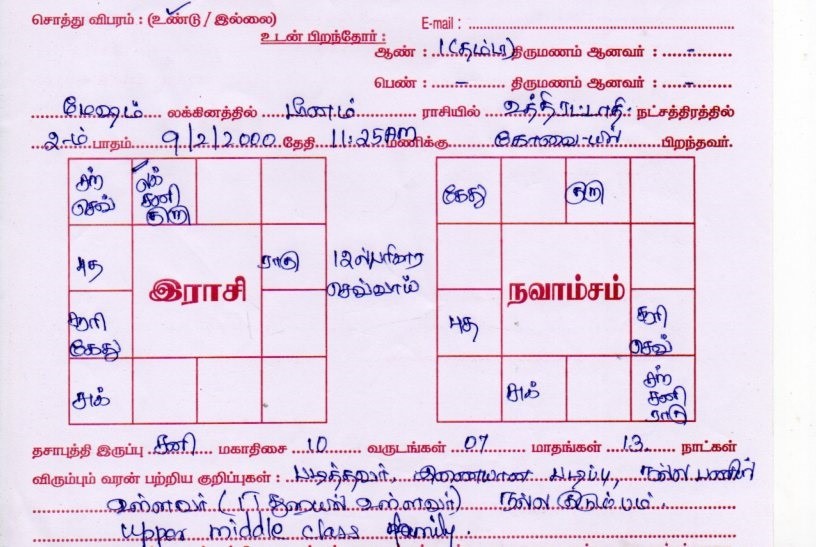 சொத்து விபரம் : (உண்டு / இல்லை) E-mail :
உடன் பிறந்தோர் :
ஆண் : 1 (தம்பி) திருமணம் ஆனவர் : -
பெண் : - திருமணம் ஆனவர் : -
மேஷம் லக்கினத்தில் மீனம் ராசியில் உத்திரட்டாதி நட்சத்திரத்தில்
2-ம் பாதம் 9/2/2000 தேதி 11:25 AM மணிக்கு கோவை-யில் பிறந்தவர்.
சந்
செவ்
ல
சனி
குரு
கேது
குரு
புத
ராகு
12ல் பரிகார
செவ்வாய்
இராசி
நவாம்சம்
சூரி
கேது
புத
சூரி
செவ்
சுக்
சுக்
சந்
சனி
ராகு
தசாபுத்தி இருப்பு சனி மகாதிசை 10 வருடங்கள் 07 மாதங்கள் 13 நாட்கள்
விரும்பும் வரன் பற்றிய குறிப்புகள் : படித்தவர், இணையான படிப்பு, நல்ல பணியில்
உள்ளவர் (IT துறையில் உள்ளவர்) நல்ல குடும்பம்.
upper middle class family.